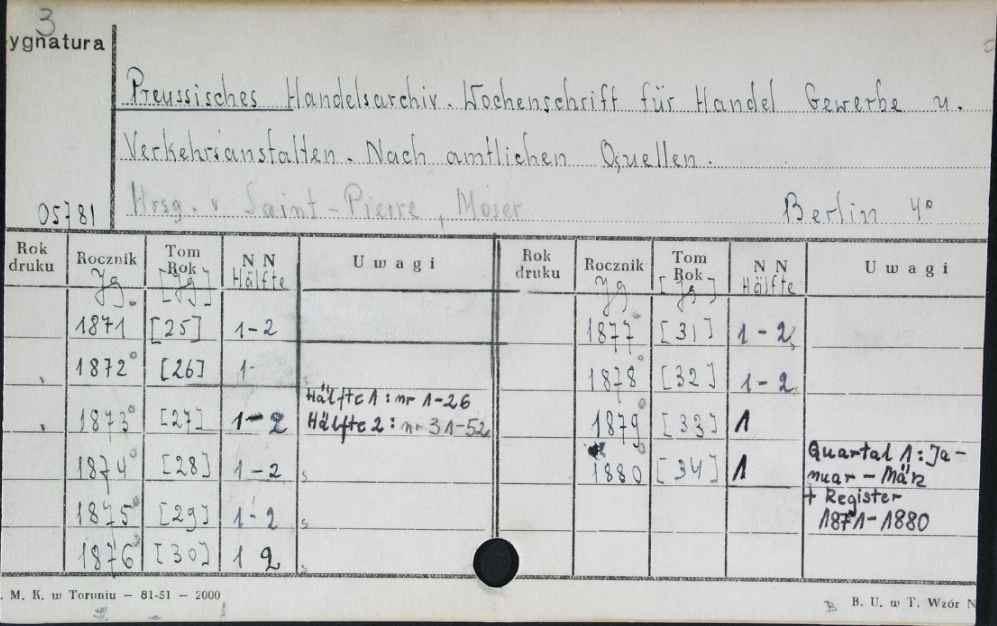 3
ygnatura
Preussisches Handelsarchiv. Wochenschrift für Handel Gewerbe u.
Verkehrsanstalten. Nach amtlichen Quellen.
05781 Hrsg. v Saint-Pierre, Moser Berlin 4°
Rok druku Rocznik Tom Rok N N Uwagi Rok druku Rocznik Tom Rok N N Uwagi
Jg. [Jg] Hälfte Jg [Jg] Hälfte
1871 [25] 1-2 1877° [31] 1-2
1872° [26] 1- 1878° [32] 1-2
1873° [27] 1-2 Hälfte 1: nr 1-26 1879° [33] 1
Hälfte 2: nr 31-52
1874° [28] 1-2 1880 [34] 1 Quartal 1: Ja-
nuar - März
+ Register
1875° [29] 1-2 1871-1880
1876° [30] 1 2
. M. K. w Toruniu — 81-51 — 2000 B. U. w T. Wzór N